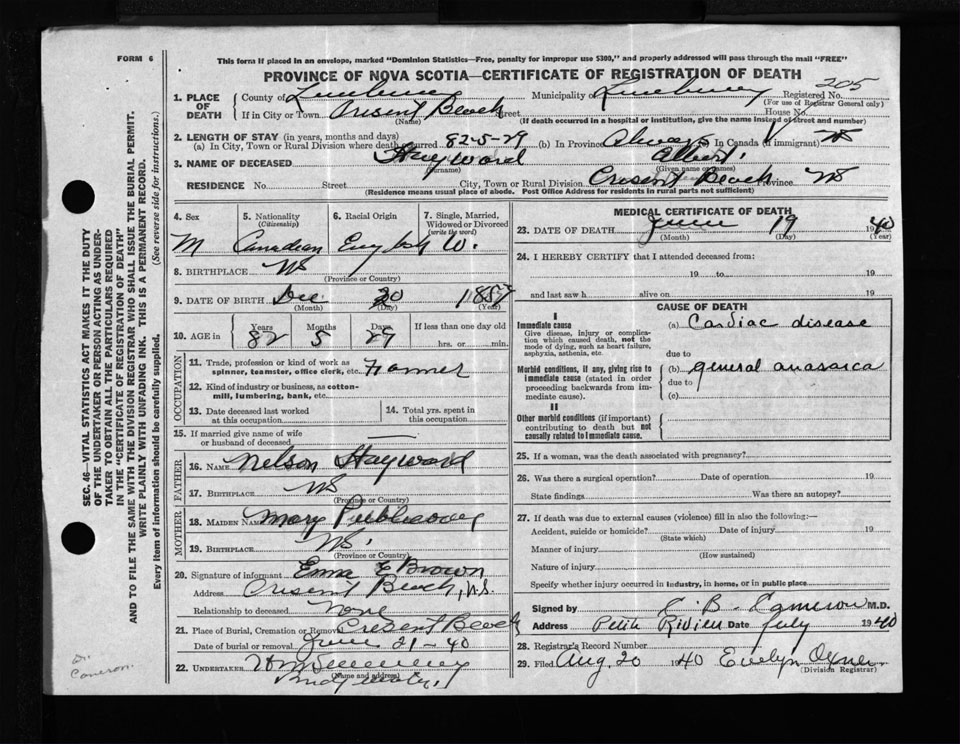 FORM 6
This form if placed in an envelope, marked "Dominion Statistics—Free, penalty for improper use $300," and properly addressed will pass through the mail "FREE"
PROVINCE OF NOVA SCOTIA—CERTIFICATE OF REGISTRATION OF DEATH
205
1. PLACE OF DEATH County of Lunenburg Municipality Lunenburg Registered No.
(For use of Registrar General only)
If in City or Town Cresent Beach Street House No.
(Name) (If death occurred in a hospital or institution, give the name instead of street and number)
2. LENGTH OF STAY (in years, months and days)
(a) In City, Town or Rural Division where death occurred 82-5-29 (b) In Province Always (c) In Canada (if immigrant)
3. NAME OF DECEASED Hayward Albert
(Surname) (Given name or names)
RESIDENCE No. Street City, Town or Rural Division Cresent Beach Province NS
(Residence means usual place of abode. Post Office Address for residents in rural parts not sufficient)
4. Sex 5. Nationality (Citizenship) 6. Racial Origin 7. Single, Married, Widowed or Divorced (write the word)
M Canadian English W.
8. BIRTHPLACE NS
(Province or Country)
9. DATE OF BIRTH Dec 20 1857
(Month) (Day) (Year)
10. AGE in Years Months Days If less than one day old
82 5 29 hrs. or min.
OCCUPATION
11. Trade, profession or kind of work as spinner, teamster, office clerk, etc. Farmer
12. Kind of industry or business, as cotton-mill, lumbering, bank, etc.
13. Date deceased last worked at this occupation 14. Total yrs. spent in this occupation
15. If married give name of wife or husband of deceased
FATHER
16. NAME Nelson Hayward
17. BIRTHPLACE NS
(Province or Country)
MOTHER
18. MAIDEN NAME Mary
19. BIRTHPLACE NS
(Province or Country)
20. Signature of informant Emma E Brown
Address Cresent Beach, N.S.
Relationship to deceased None
21. Place of Burial, Cremation or Removal Cresent Beach
Date of burial or removal June 21-40
22. UNDERTAKER
(Name and address)
MEDICAL CERTIFICATE OF DEATH
23. DATE OF DEATH June 19 1940
(Month) (Day) (Year)
24. I HEREBY CERTIFY that I attended deceased from:
19 to 19
and last saw h alive on 19
CAUSE OF DEATH
I
Immediate cause
Give disease, injury or complication which caused death, not the mode of dying, such as heart failure, asphyxia, asthenia, etc.
(a) Cardiac disease
due to
Morbid conditions, if any, giving rise to immediate cause (stated in order proceeding backwards from immediate cause).
(b) general anasarca
due to
(c)
II
Other morbid conditions (if important) contributing to death but not causally related to immediate cause.
25. If a woman, was the death associated with pregnancy?
26. Was there a surgical operation? Date of operation 19
State findings Was there an autopsy?
27. If death was due to external causes (violence) fill in also the following:—
Accident, suicide or homicide? Date of injury 19
(State which)
Manner of injury
(How sustained)
Nature of injury
Specify whether injury occurred in industry, in home, or in public place
Signed by C. B. Cameron M.D.
Address Petite Riviere Date July 1940
28. Registrar's Record Number
29. Filed Aug 20 1940 Evelyn
(Division Registrar)
SEC. 46—VITAL STATISTICS ACT MAKES IT THE DUTY
OF THE UNDERTAKER OR PERSON ACTING AS UNDER-
TAKER TO OBTAIN ALL THE PARTICULARS REQUIRED
IN THE "CERTIFICATE OF REGISTRATION OF DEATH"
AND TO FILE THE SAME WITH THE DIVISION REGISTRAR WHO SHALL ISSUE THE BURIAL PERMIT.
WRITE PLAINLY WITH UNFADING INK. THIS IS A PERMANENT RECORD.
Every item of information should be carefully supplied. (See reverse side for instructions.)
Dr.
Cameron.